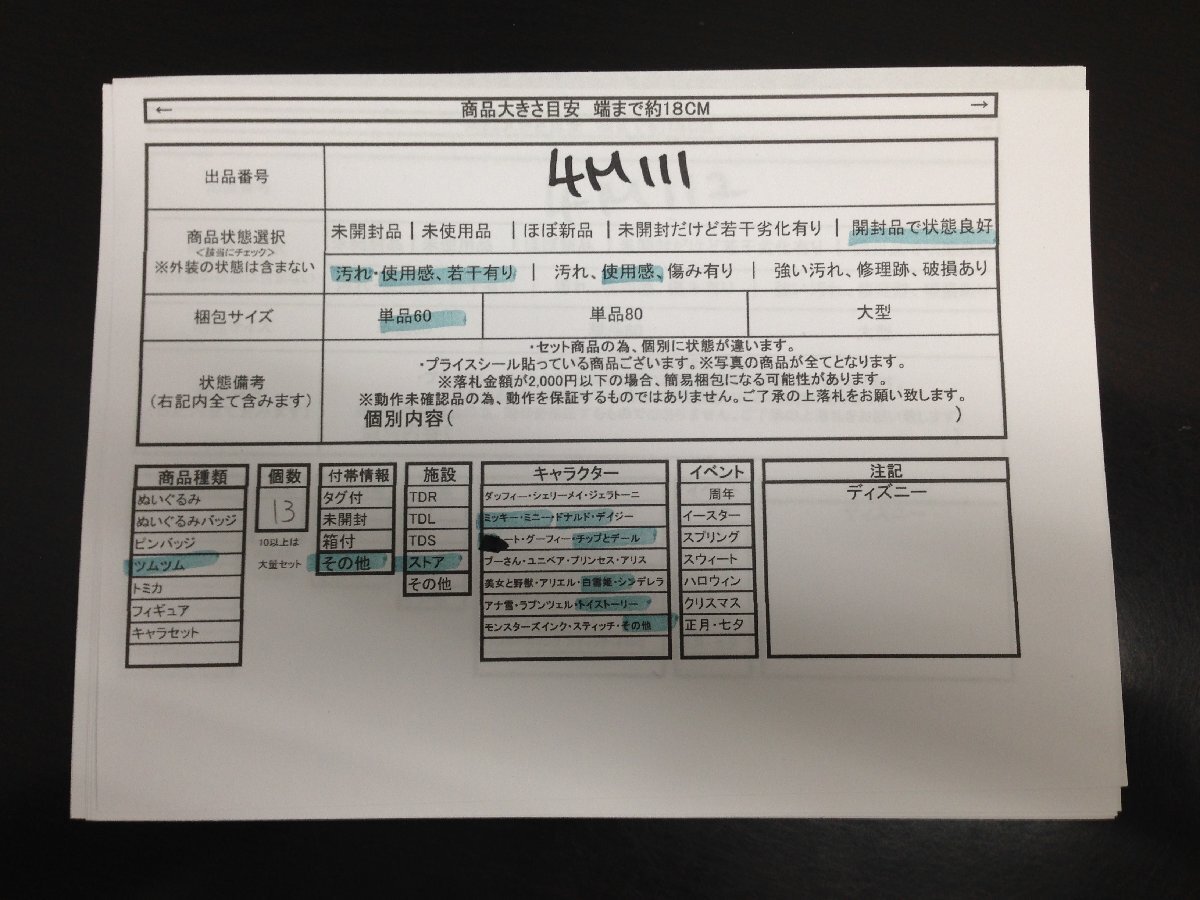 ← 商品大きさ目安 端まで約18CM →
出品番号 4M111
商品状態選択
<該当にチェック>
※外装の状態は含まない
未開封品 | 未使用品 | ほぼ新品 | 未開封だけど若干劣化有り | 開封品で状態良好
汚れ・使用感、若干有り | 汚れ、使用感、傷み有り | 強い汚れ、修理跡、破損あり
梱包サイズ 単品60 単品80 大型
状態備考
(右記内全て含みます)
・セット商品の為、個別に状態が違います。
・プライスシール貼っている商品ございます。※写真の商品が全てとなります。
※落札金額が2,000円以下の場合、簡易梱包になる可能性があります。
※動作未確認品の為、動作を保証するものではありません。ご了承の上落札をお願い致します。
個別内容( )
商品種類
ぬいぐるみ
ぬいぐるみバッジ
ピンバッジ
ツムツム
トミカ
フィギュア
キャラセット
個数
13
10以上は
大量セット
付帯情報
タグ付
未開封
箱付
その他
施設
TDR
TDL
TDS
ストア
その他
キャラクター
ダッフィー・シェリーメイ・ジェラトーニ
ミッキー・ミニー・ドナルド・デイジー
ート・グーフィー・チップとデール
プーさん・ユニベア・プリンセス・アリス
美女と野獣・アリエル・白雪姫・シンデレラ
アナ雪・ラプンツェル・トイストーリー
モンスターズインク・スティッチ・その他
イベント
周年
イースター
スプリング
スウィート
ハロウィン
クリスマス
正月・七夕
注記
ディズニー